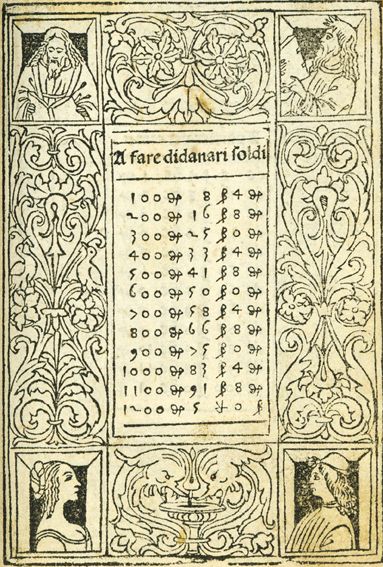 A fare didanari ſoldi
100 ₰ 8 ß 4 ₰
200 ₰ 16 ß 8 ₰
300 ₰ 25 ß 0 ₰
400 ₰ 33 ß 4 ₰
500 ₰ 41 ß 8 ₰
600 ₰ 50 ß 0 ₰
700 ₰ 58 ß 4 ₰
800 ₰ 66 ß 8 ₰
900 ₰ 75 ß 0 ₰
1000 ₰ 83 ß 4 ₰
1100 ₰ 91 ß 8 ₰
1200 ₰ 5 ₶ 0 ß